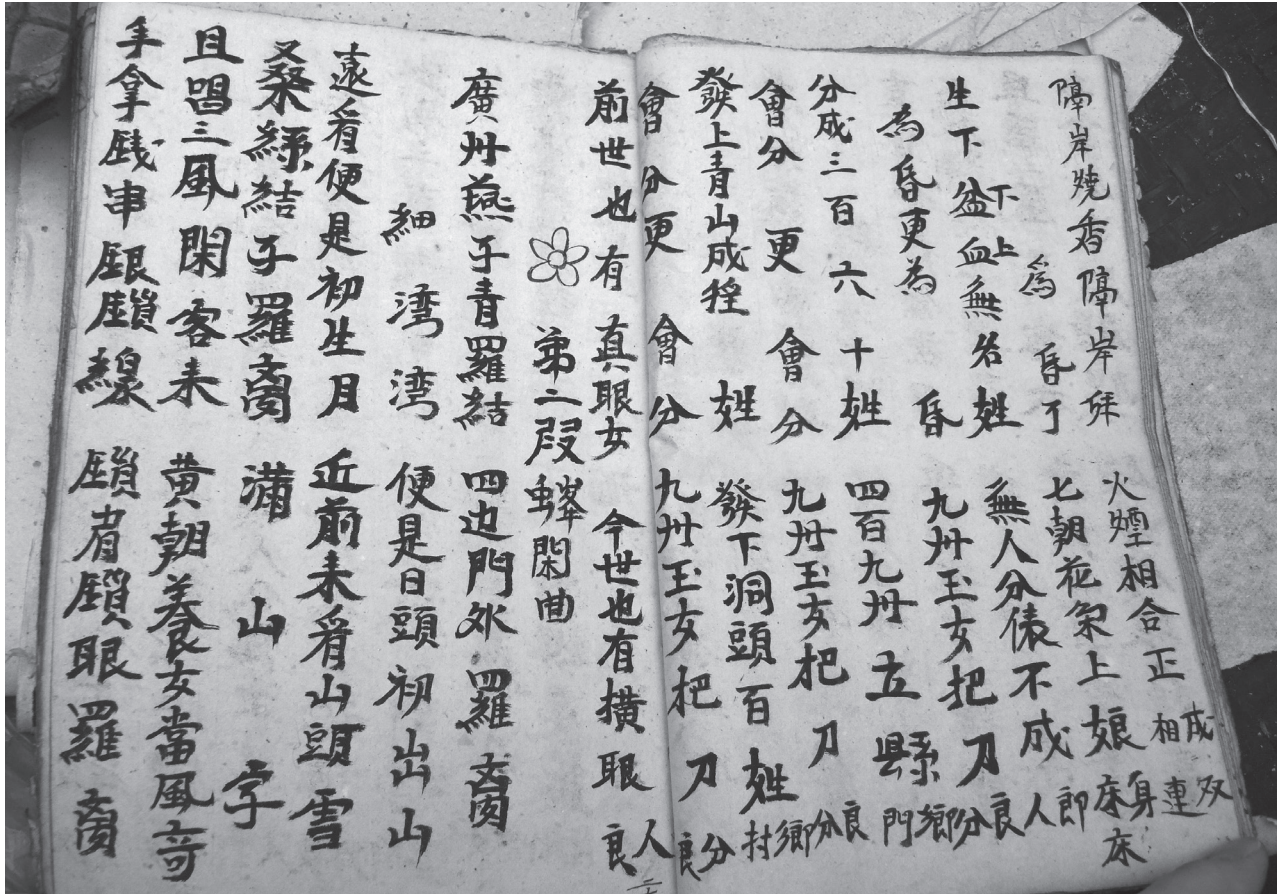 隔岸燒香隔岸年 火煙相合正相連 成双
為昏了 七朝花宋上娘身 床床
生下盆血無名姓 下上 無人分俵不成人 郎
為昏更為昏 九州玉女把刀分 良
分成三百六十姓 四百九州立縣門 鄉
會分更會分 九州玉女把刀分 良
發上青山成猺姓 發下洞頭百姓村 鄉
會分更會分 九州玉女把刀分 良
前世也有真眼女 今世也有横眼人 良
第二段 閑曲
廣州燕子青羅結 四边門外羅
細湾湾 便是日頭初出山
遠看便是初生月 近前来看山頭雪
桑 結子羅 滿山字
且唱三風閑客来 黄朝養女當風奇
手拿 串銀鎖線 鎖眉鎖眼羅